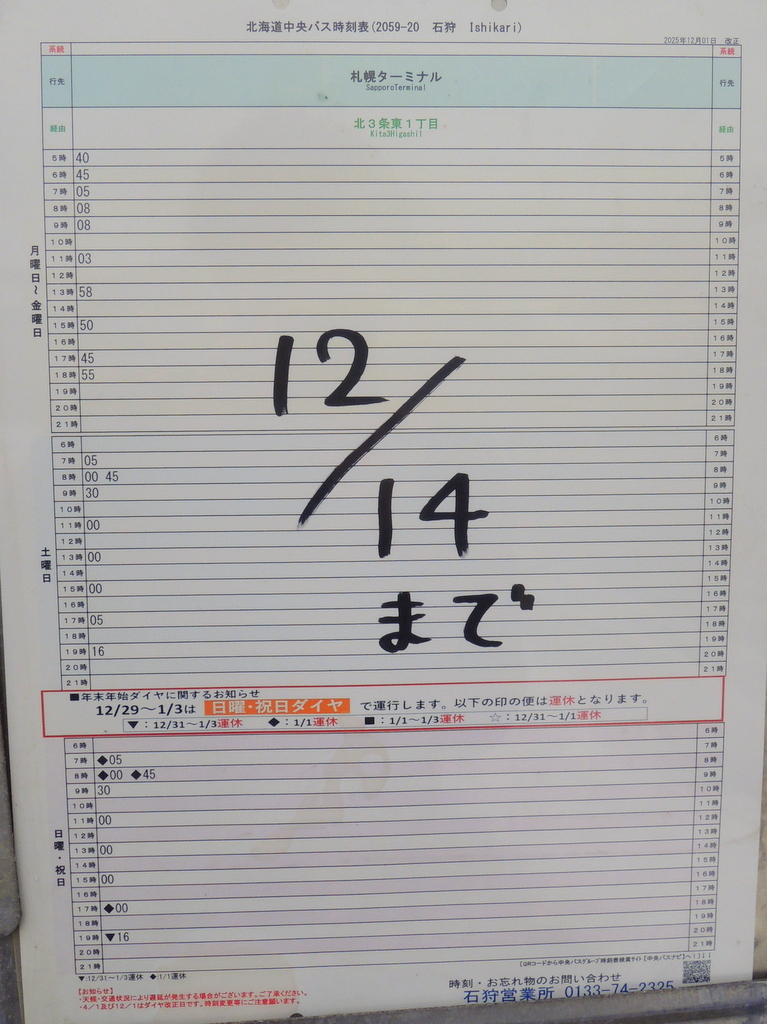 北海道中央バス時刻表(2059-20 石狩 Ishikari)
2025年12月01日 改正
系統 系統
行先 札幌ターミナル 行先
SapporoTerminal
経由 北3条東1丁目 経由
Kita3Higashi1
月曜日~金曜日
5時 40 5時
6時 45 6時
7時 05 7時
8時 08 8時
9時 08 9時
10時 10時
11時 03 11時
12時 12時
13時 58 13時
14時 14時
15時 50 15時
16時 16時
17時 45 17時
18時 55 18時
19時 19時
20時 20時
21時 21時
12/14
まで
土曜日
6時 7時
7時 05 8時
8時 00 45 9時
9時 30 10時
10時 11時
11時 00 12時
12時 13時
13時 00 14時
14時 15時
15時 00 16時
16時 17時
17時 05 18時
18時 19時
19時 16 20時
20時 21時
21時
■年末年始ダイヤに関するお知らせ
12/29~1/3は 日曜・祝日ダイヤ で運行します。以下の印の便は運休となります。
▼:12/31~1/3運休 ◆:1/1運休 ■:1/1~1/3運休 ☆:12/31~1/1運休
日曜・祝日
6時 6時
7時 ◆05 7時
8時 ◆00 ◆45 8時
9時 30 9時
10時 10時
11時 00 11時
12時 12時
13時 00 13時
14時 14時
15時 00 15時
16時 16時
17時 ◆00 17時
18時 18時
19時 ▼16 19時
20時 20時
21時 21時
▼:12/31~1/3運休 ◆:1/1運休
【お知らせ】
・天候・交通状況により遅延が発生する場合がございます。ご了承ください。
・4/1及び12/1はダイヤ改正日です。時刻変更等にご注意願います。
【QRコードから中央バスグループ時刻表検索サイト【中央バスナビ】へ！！】
時刻・お忘れ物のお問い合わせ
石狩営業所 0133-74-2325